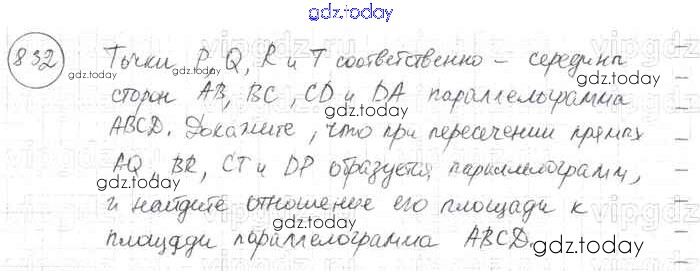 gdz.today
832 Точки P, Q, R и T соответственно – середины
gdz.today
сторон AB, BC, CD и DA параллелограмма
gdz.today
ABCD. Докажите, что при пересечении прямых
AQ, BR, CT и DP образуется параллелограмм,
gdz.today
и найдите отношение его площади к
площади параллелограмма ABCD.
gdz.today